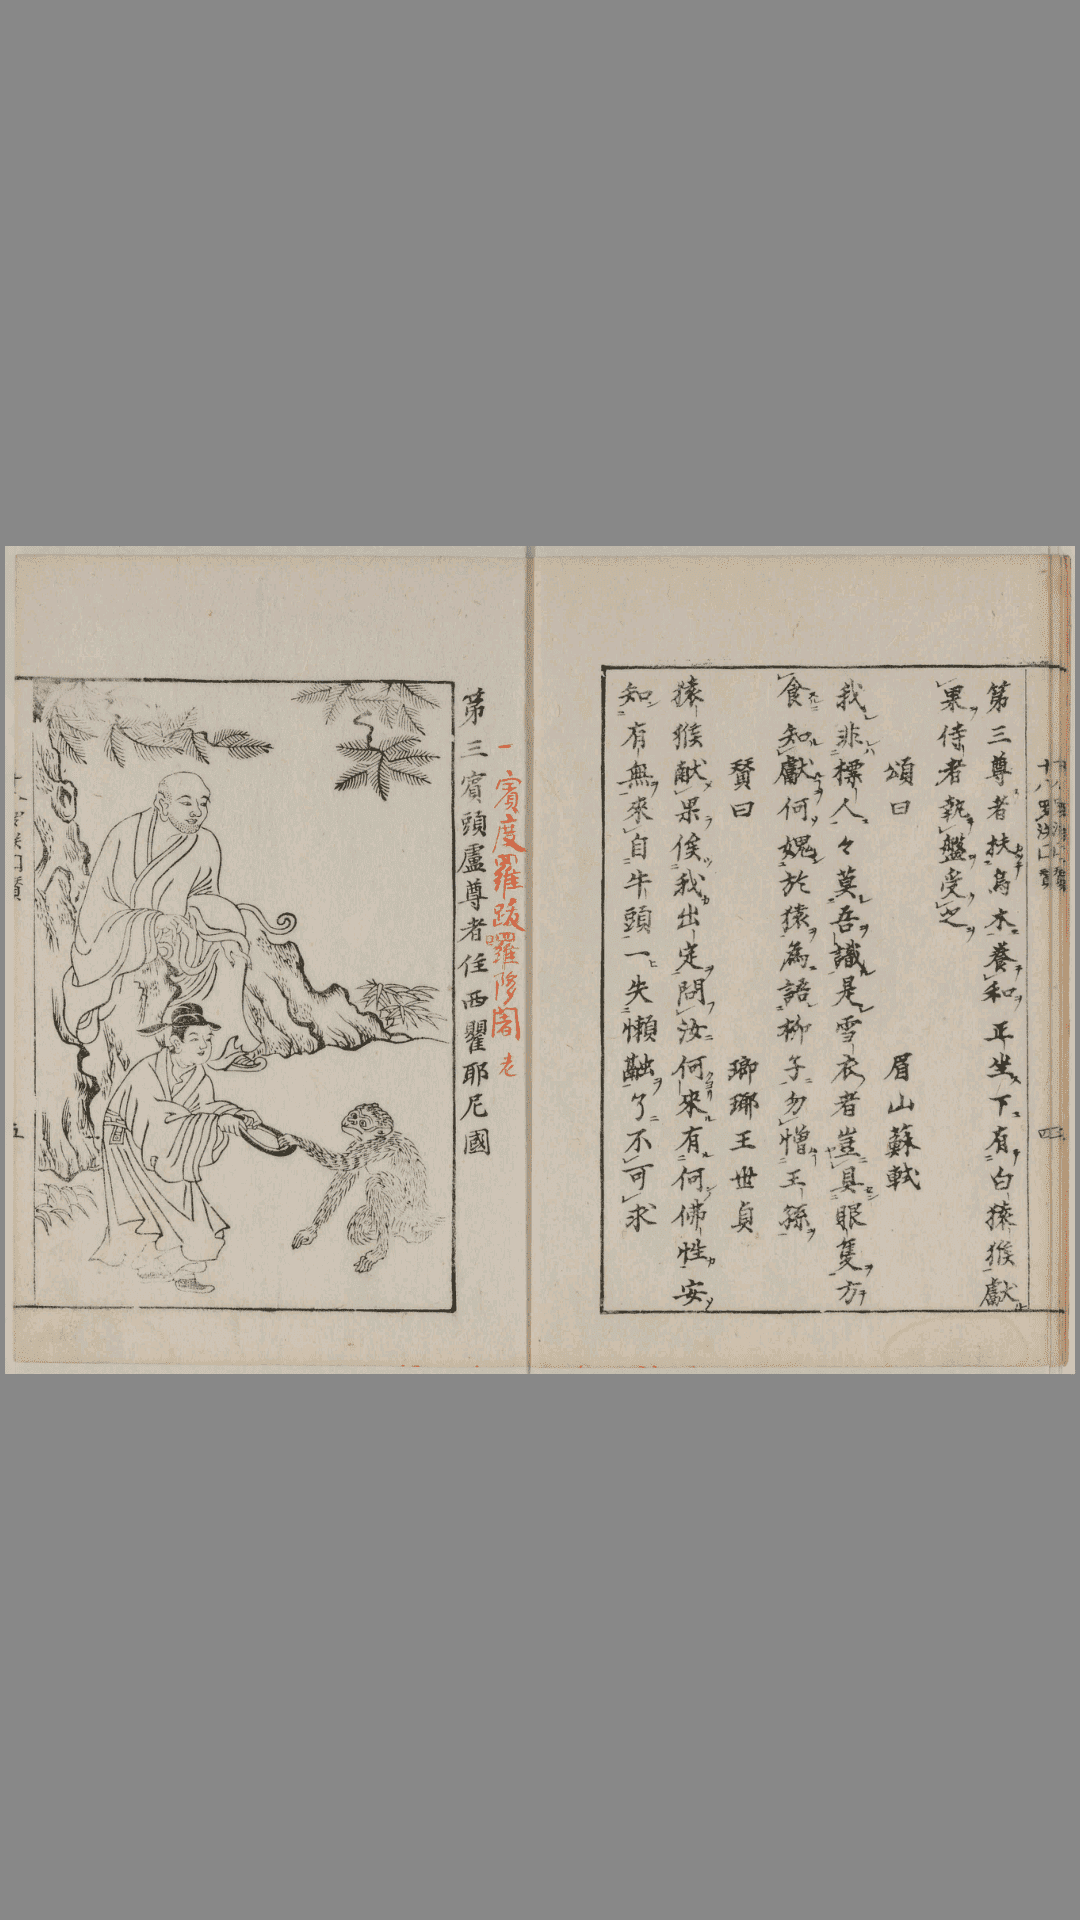 第三尊者扶烏木養和正坐下有白猿猴獻
果侍者執盤受之
頌曰 眉山蘇軾
我非標人々莫吾識是雪衣者豈具眼隻方
食知獻何媿於猿為語柳子勿憎王孫
賛曰 瑯琊王世貞
猿猴献果俟我出定問汝何來有何佛性安
知有無來自牛頭一失懶融了不可求
四
一賓度羅跋囉惰闍 老
第三賓頭盧尊者住西瞿耶尼國
五